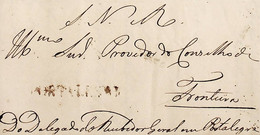 S. N. R.
Illmo Snr. Provedor do Conselho de
Fronteira
PORTALEGRE
Do Delegado do Ouvidor Geral em Portalegre